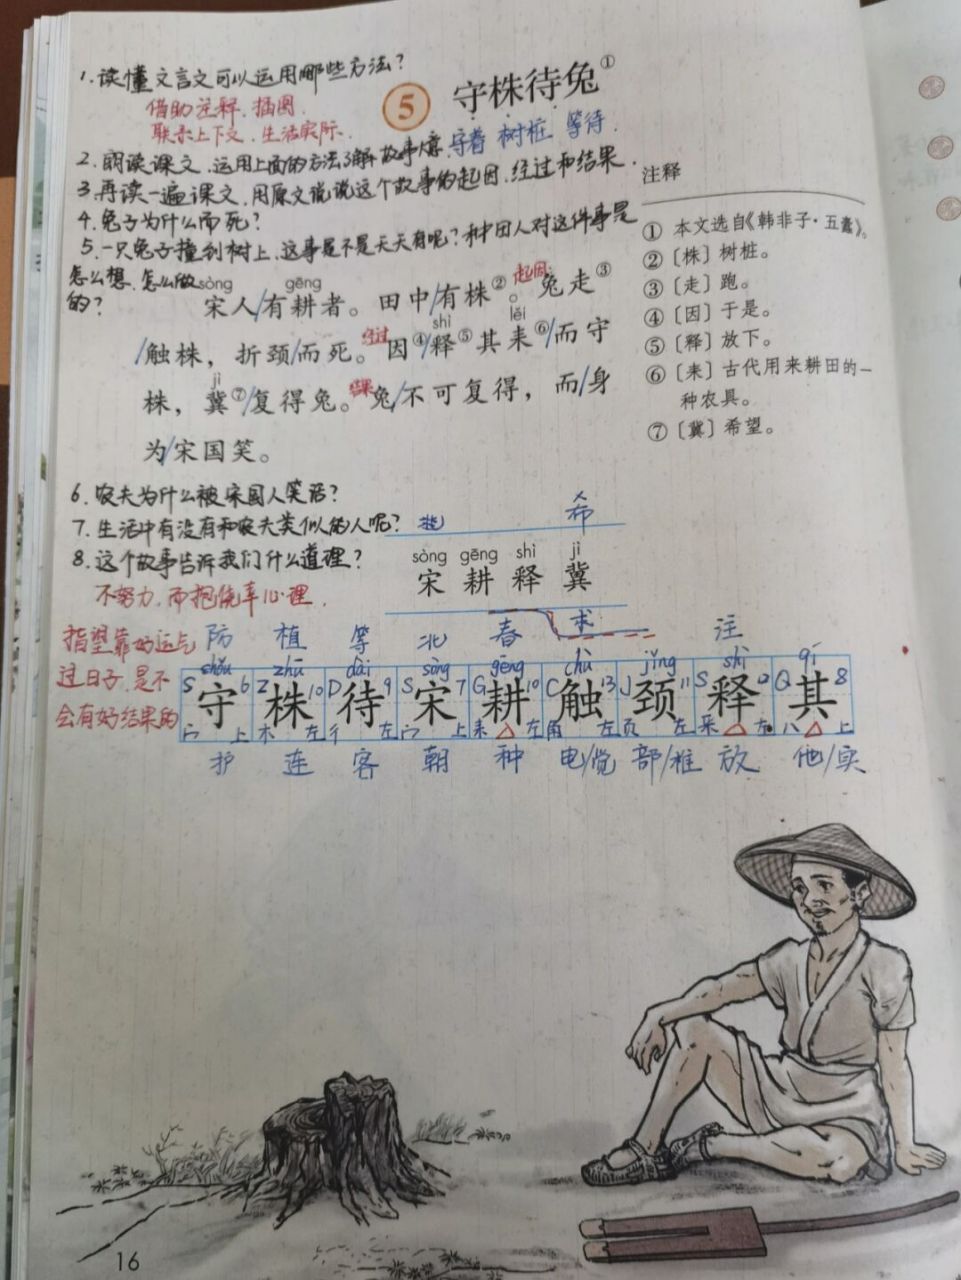 1.读懂文言文可以运用哪些方法?
借助注释、插图、
联系上下文、生活实际.
5 守株待兔①
守着 树桩 等待.
2.朗读课文,运用上面的方法了解故事大意.
3.再读一遍课文,用原文说说这个故事的起因、经过和结果.
4.兔子为什么而死?
5.一只兔子撞到树上,这事是不是天天有呢?种田人对这件事是
怎么想、怎么做
的?
sòng gēng
宋人/有耕者。田中/有株②。起因 兔走③
shì lěi
/触株,折颈/而死。经过 因④/释⑤其耒⑥/而守
jì
株,冀⑦/复得兔。结果 兔/不可复得,而/身
为/宋国笑。
注释
① 本文选自《韩非子·五蠹》。
② 〔株〕树桩。
③ 〔走〕跑。
④ 〔因〕于是。
⑤ 〔释〕放下。
⑥ 〔耒〕古代用来耕田的一
种农具。
⑦ 〔冀〕希望。
6.农夫为什么被宋国人笑话?
7.生活中有没有和农夫类似的人呢?
8.这个故事告诉我们什么道理?
不努力,而抱侥幸心理.
指望靠好运气
过日子,是不
会有好结果的
希
sòng gēng shì jì
宋 耕 释 冀
求
防 植 等 北 春 注
shǒu zhū dài sòng gēng chù jǐng shì qí
S 6 Z 10 D 9 S 7 G 10 C 13 J 11 S 12 Q 8
守 株 待 宋 耕 触 颈 释 其
宀 上 木 左 彳 左 宀 上 耒 左 角 左 页 左 釆 左 八 上
护 连 客 朝 种 电/觉 部/椎 放 他/实
16